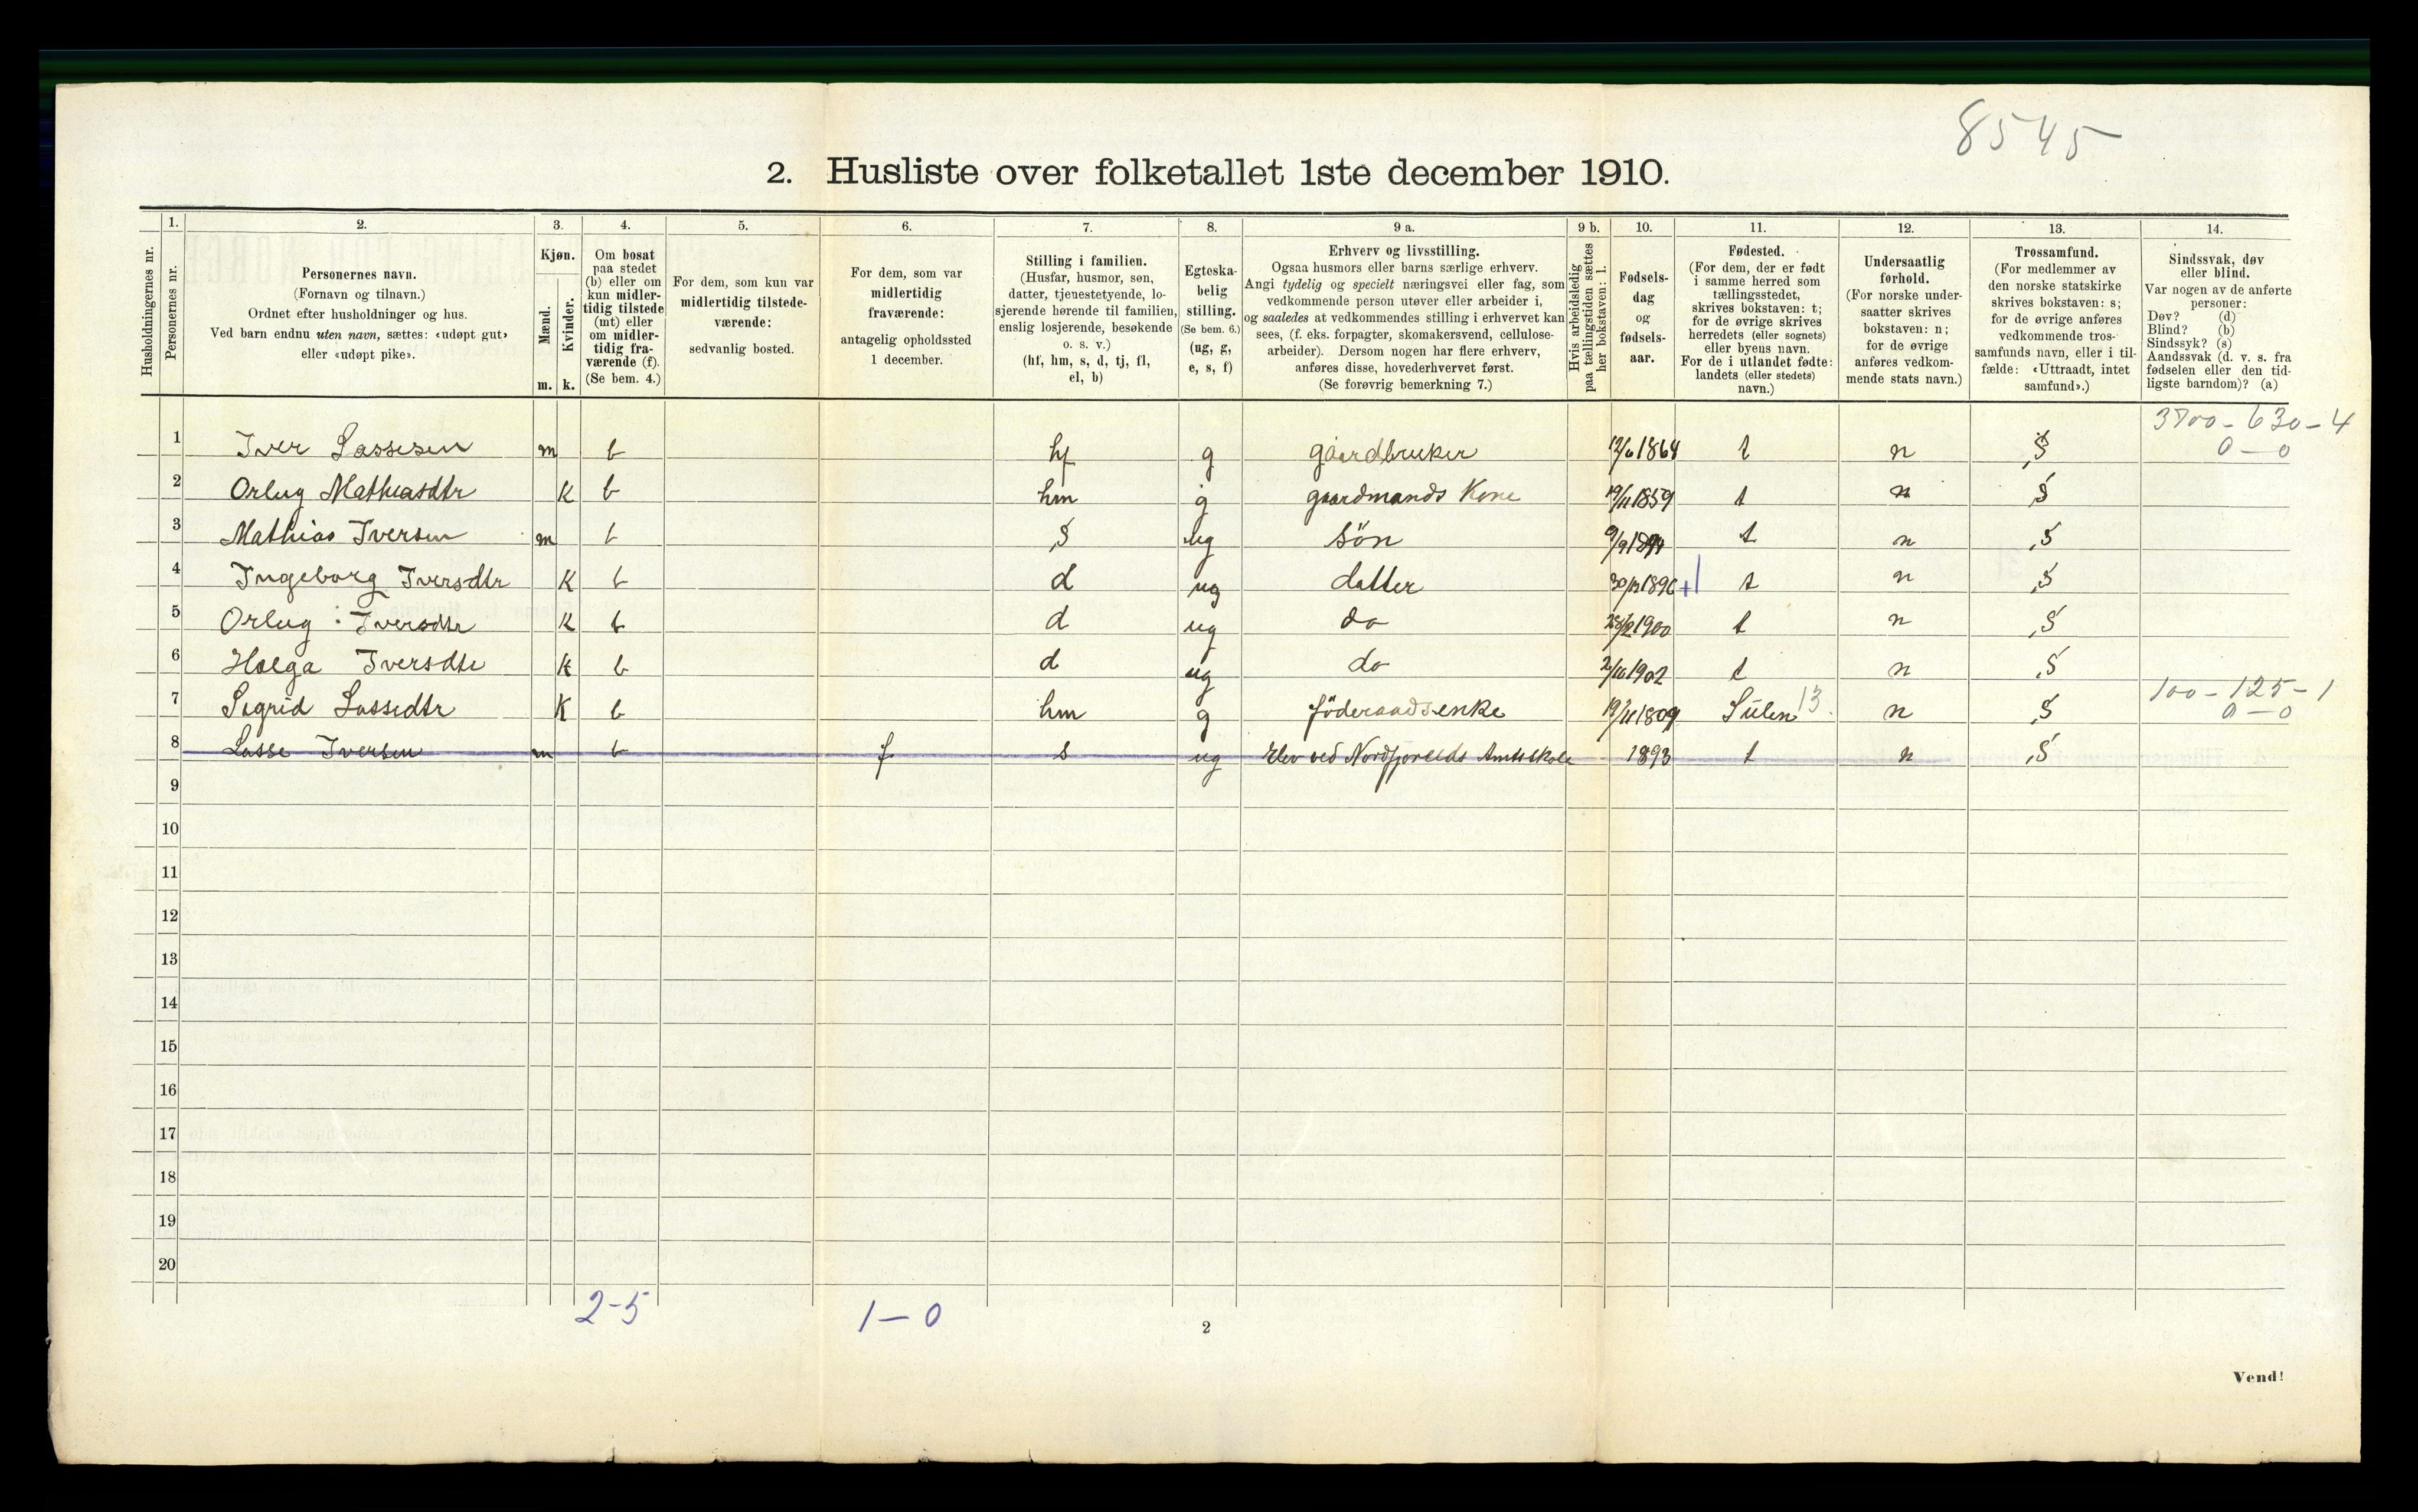 8545
2. Husliste over folketallet 1ste december 1910.
Husholdningernes nr.
1.
Personernes nr.
2.
Personernes navn.
(Fornavn og tilnavn.)
Ordnet efter husholdninger og hus.
Ved barn endnu uten navn, sættes: «udøpt gut»
eller «udøpt pike».
3.
Kjøn.
Mænd.
m.
Kvinder.
k.
4.
Om bosat
paa stedet
(b) eller om
kun midler-
tidig tilstede
(mt) eller
om midler-
tidig fra-
værende (f).
(Se bem. 4.)
5.
For dem, som kun var
midlertidig tilstede-
værende:
sedvanlig bosted.
6.
For dem, som var
midlertidig
fraværende:
antagelig opholdssted
1 december.
7.
Stilling i familien.
(Husfar, husmor, søn,
datter, tjenestetyende, lo-
sjerende hørende til familien,
enslig losjerende, besøkende
o. s. v.)
(hf, hm, s, d, tj, fl,
el, b)
8.
Egteska-
belig
stilling.
(Se bem. 6.)
(ug, g,
e, s, f)
9 a.
Erhverv og livsstilling.
Ogsaa husmors eller barns særlige erhverv.
Angi tydelig og specielt næringsvei eller fag, som
vedkommende person utøver eller arbeider i,
og saaledes at vedkommendes stilling i erhvervet kan
sees, (f. eks. forpagter, skomakersvend, cellulose-
arbeider). Dersom nogen har flere erhverv,
anføres disse, hovederhvervet først.
(Se forøvrig bemerkning 7.)
9 b.
Hvis arbeidsledig
paa tællingstiden sættes
her bokstaven: l.
10.
Fødsels-
dag
og
fødsels-
aar.
11.
Fødested.
(For dem, der er født
i samme herred som
tællingsstedet,
skrives bokstaven: t;
for de øvrige skrives
herredets (eller sognets)
eller byens navn.
For de i utlandet fødte:
landets (eller stedets)
navn.)
12.
Undersaatlig
forhold.
(For norske under-
saatter skrives
bokstaven: n;
for de øvrige
anføres vedkom-
mende stats navn.)
13.
Trossamfund.
(For medlemmer av
den norske statskirke
skrives bokstaven: s;
for de øvrige anføres
vedkommende tros-
samfunds navn, eller i til-
fælde: «Uttraadt, intet
samfund».)
14.
Sindssvak, døv
eller blind.
Var nogen av de anførte
personer:
Døv? (d)
Blind? (b)
Sindssyk? (s)
Aandssvak (d. v. s. fra
fødselen eller den tid-
ligste barndom)? (a)
3700-630-4
0-0
1 Iver Lassesen m b hf g gaardbruker 1864 t n S
2 Orlug Mathiasdtr K b hm g gaardmands Kone 19/11 1859 t n S
3 Mathias Iversen m b S ug Sön 9/9 t n S
4 Ingeborg Iversdtr K b d ug datter 30/12 1896 + t n S
5 Orlug Iversdtr K b d ug do 1900 t n S
6 Helga Iversdtr K b d ug do 1902 t n S
100-125-1
7 Sigrid Lassedtr K b hm g föderaadsenke Sülen 13. n S
0-0
8 Lasse Iversen m b f s ug Elev ved Nordfjoreids Amtsskole 1893 t n S
9
10
11
12
13
14
15
16
17
18
19
20
2-5
1-0
2
Vend!